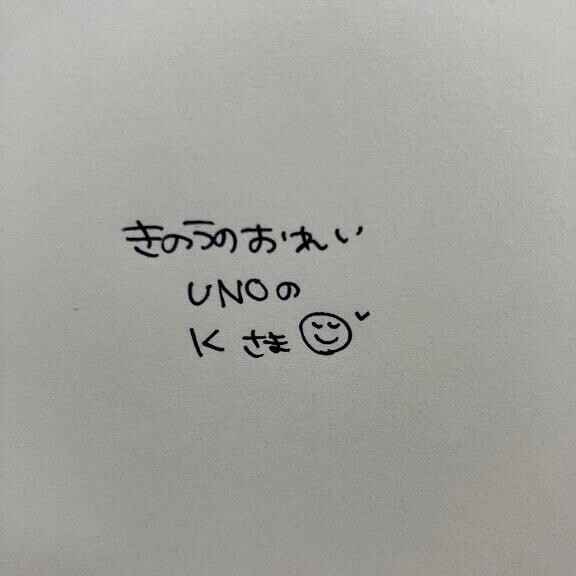 きのうのおれい
UNOの
Kさま